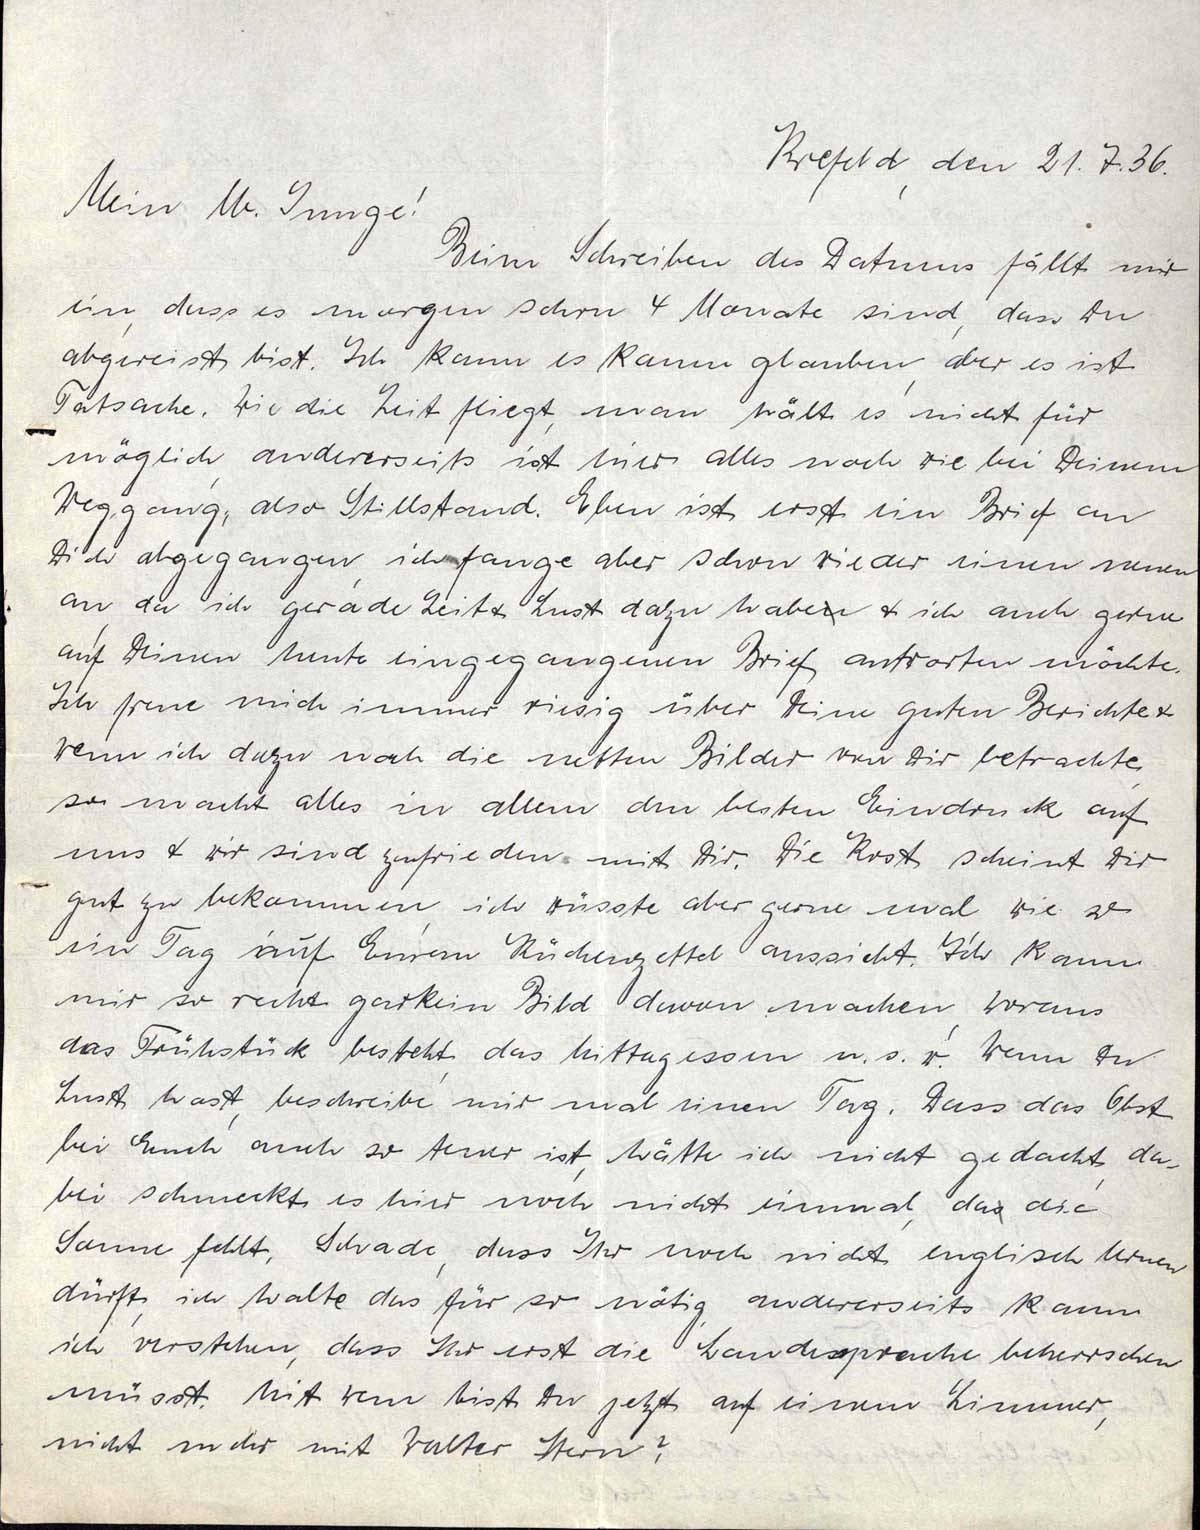 Krefeld, den 21.7.36.
Mein lb. Junge!
Beim Schreiben des Datums fällt mir
ein, dass es morgen schon 4 Monate sind, dass Du
abgereist bist. Ich kann es kaum glauben, aber es ist
Tatsache. Wie die Zeit fliegt, man hält es nicht für
möglich, andererseits ist hier alles noch wie bei Deinem
Weggang, also Stillstand. Eben ist erst ein Brief an
Dich abgegangen, ich fange aber schon wieder einen neuen
an, da ich gerade Zeit & Lust dazu habe & ich auch gerne
auf Deinen heute eingegangenen Brief antworten möchte.
Ich freue mich immer riesig über Deine guten Berichte &
wenn ich dazu noch die netten Bilder von Dir betrachte,
so macht alles in allem den besten Eindruck auf
uns & wir sind zufrieden mit Dir. Die Kost scheint Dir
gut zu bekommen, ich wüsste aber gerne mal wie so
ein Tag auf Eurem Küchenzettel aussieht. Ich kann
mir so recht garkein Bild davon machen, woraus
das Frühstück besteht, das Mittagessen u.s.w. Wenn Du
Lust hast, beschreibe mir mal einen Tag. Dass das Obst
bei Euch auch so teuer ist, hätte ich nicht gedacht, da-
bei schmeckt es hier noch nicht einmal, da die
Sonne fehlt. Schade, dass Ihr noch nicht englisch lernen
dürft, ich halte das für so nötig, andererseits kann
ich verstehen, dass Ihr erst die Landessprache beherrschen
müsst. Mit wem bist Du jetzt auf einem Zimmer,
nicht mehr mit Walter Stern?